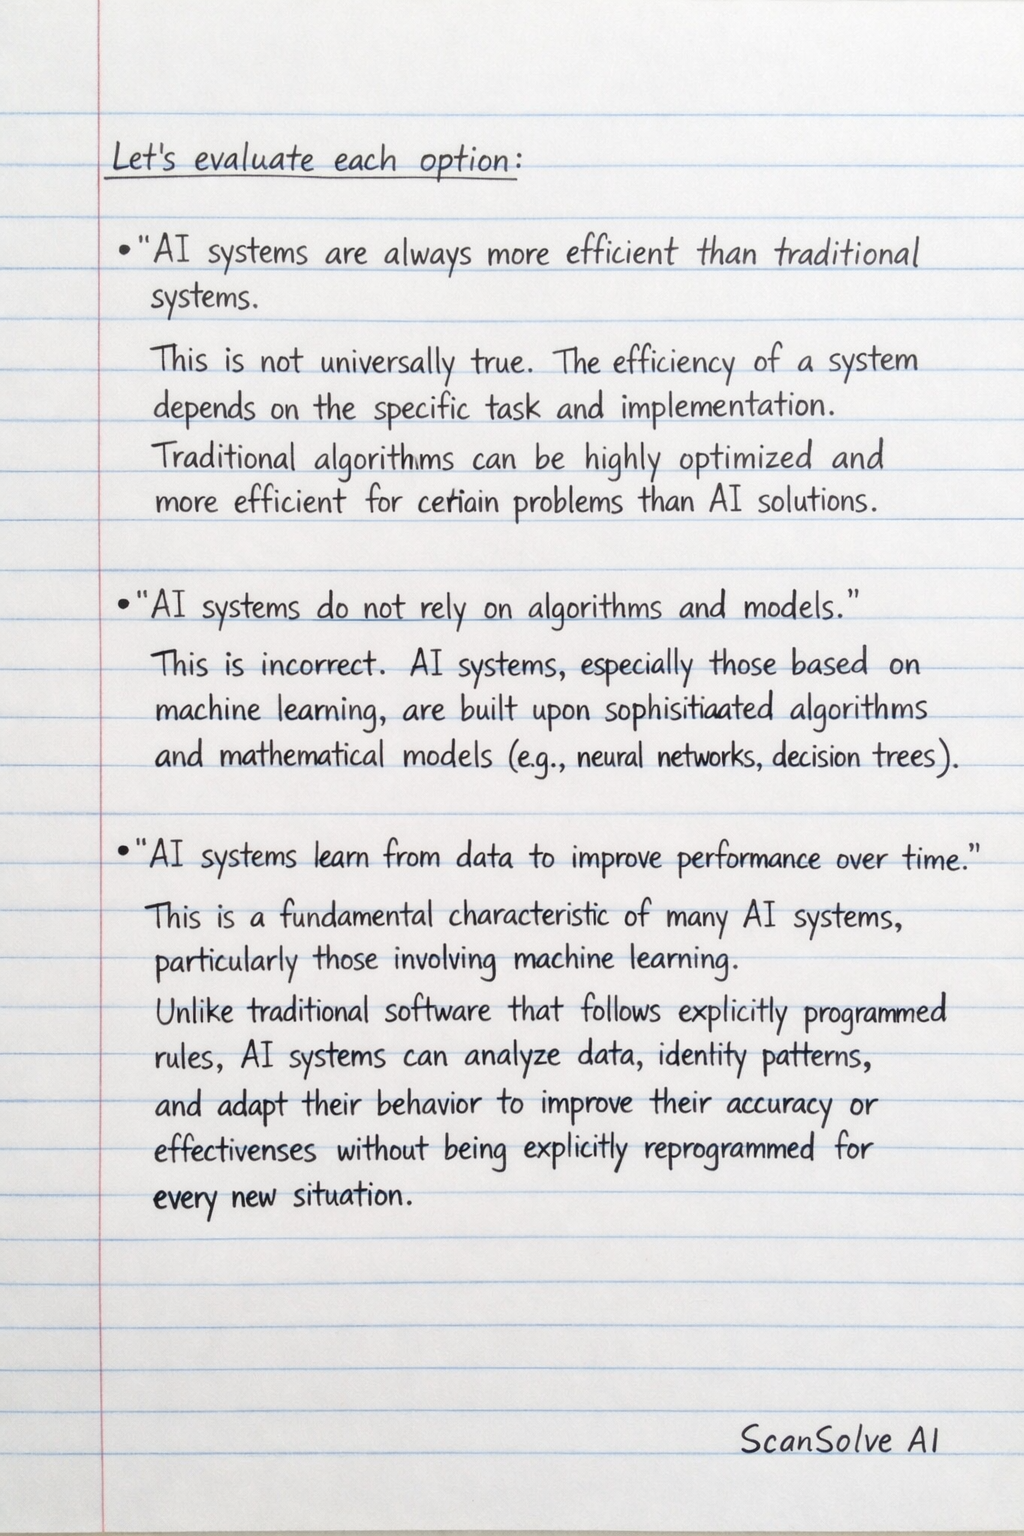 Let's evaluate each option:
• "AI systems are always more efficient than traditional
systems.
This is not universally true. The efficiency of a system
depends on the specific task and implementation.
Traditional algorithms can be highly optimized and
more efficient for certiain problems than AI solutions.
• "AI systems do not rely on algorithms and models."
This is incorrect. AI systems, especially those based on
machine learning, are built upon sophisitiaated algorithms
and mathematical models (e.g., neural networks, decision trees).
• "AI systems learn from data to improve performance over time."
This is a fundamental characteristic of many AI systems,
particularly those involving machine learning.
Unlike traditional software that follows explicitly programmed
rules, AI systems can analyze data, identity patterns,
and adapt their behavior to improve their accuracy or
effectivenses without being explicitly reprogrammed for
every new situation.
ScanSolve AI